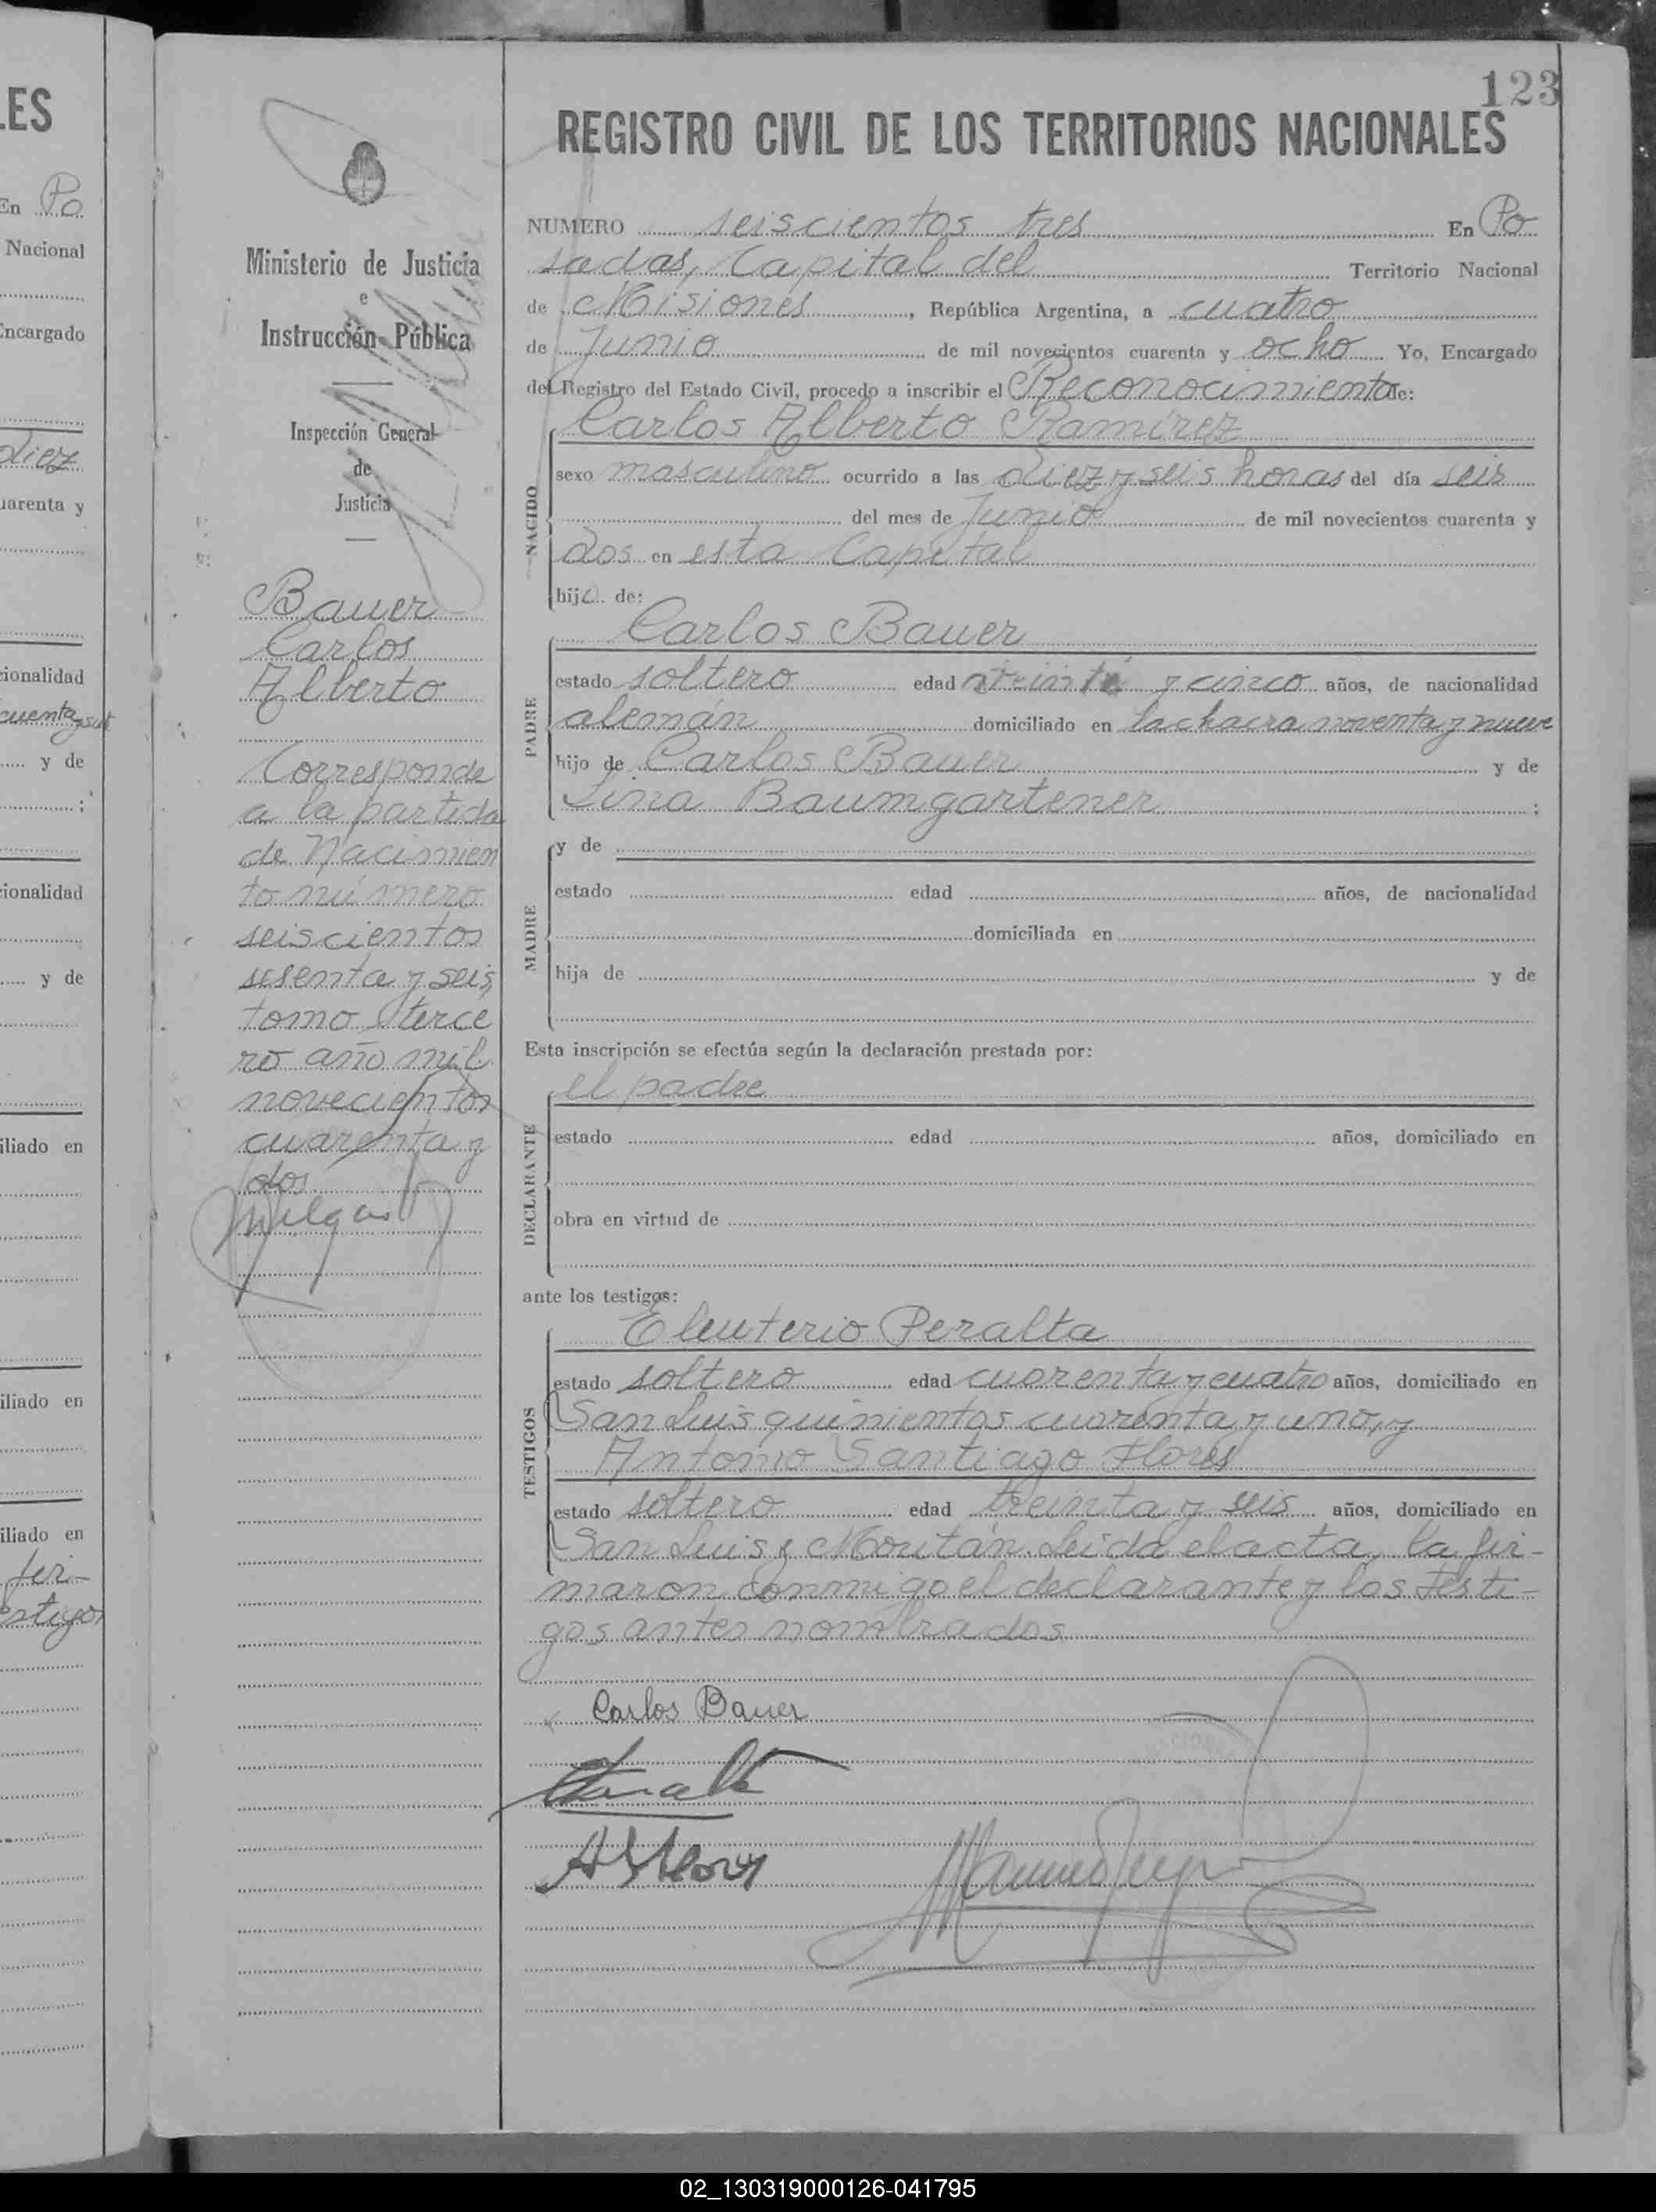 .ES
En Po
Nacional
Encargado
diez
uarenta y
cionalidad
y de
:
cionalidad
y de
iliado en
iliado en
iliado en
fir-
estigos
123
Ministerio de Justicia
e
Instrucción Pública
Inspección General
de
Justicia
Bauer
Carlos
Alberto
Corresponde
a la partida
de Nacimien
to número
seiscientos
sesenta y seis,
tomo terce
ro año mil
novecientos
cuarenta y
dos
REGISTRO CIVIL DE LOS TERRITORIOS NACIONALES
NUMERO seiscientos tres En Po
sadas, Capital del Territorio Nacional
de Misiones, República Argentina, a cuatro
de Junio de mil novecientos cuarenta y ocho Yo, Encargado
del Registro del Estado Civil, procedo a inscribir el Reconocimiento de:
NACIDO
Carlos Alberto Ramírez
sexo masculino ocurrido a las diez y seis horas del día seis
del mes de Junio de mil novecientos cuarenta y
dos en esta Capital
hijo de:
PADRE
Carlos Bauer
estado soltero edad treinta y cinco años, de nacionalidad
alemán domiciliado en la chacra noventa y nueve
hijo de Carlos Bauer y de
Lina Baumgartener ;
MADRE
y de
estado edad años, de nacionalidad
domiciliada en
hija de y de
Esta inscripción se efectúa según la declaración prestada por:
DECLARANTE
el padre
estado edad años, domiciliado en
obra en virtud de
ante los testigos:
TESTIGOS
Eleuterio Peralta
estado soltero edad cuarenta y cuatro años, domiciliado en
San Luis quinientos cuarenta y uno, y
Antonio Santiago Flores
estado soltero edad treinta y seis años, domiciliado en
San Luis y Moritán. Leida el acta, la fir-
maron conmigo el declarante y los testi-
gos antes nombrados
Carlos Bauer
02_130319000126-041795